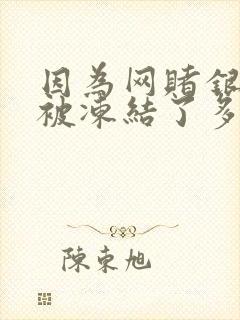 因為网賭銀
被凍結了多
陳東旭